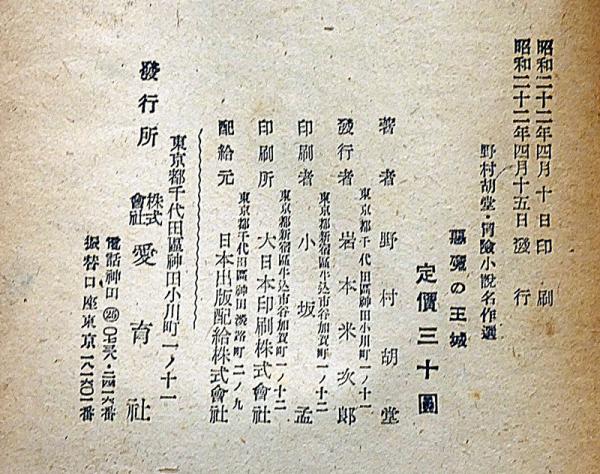 昭和二十二年四月十日印刷
昭和二十二年四月十五日發行
野村胡堂・冐險小說名作選
惡魔の王城
定價三十圓
著者 野村胡堂
東京都千代田區神田小川町一ノ十一
發行者 岩本米次郎
東京都新宿區牛込市谷加賀町一ノ十二
印刷者 小坂孟
東京都新宿區牛込市谷加賀町一ノ十二
印刷所 大日本印刷株式會社
東京都千代田區神田淡路町二ノ九
配給元 日本出版配給株式會社
東京都千代田區神田小川町一ノ十一
發行所 株式會社 愛育社
電話神田(25)
振替口座東京一八一六〇一番